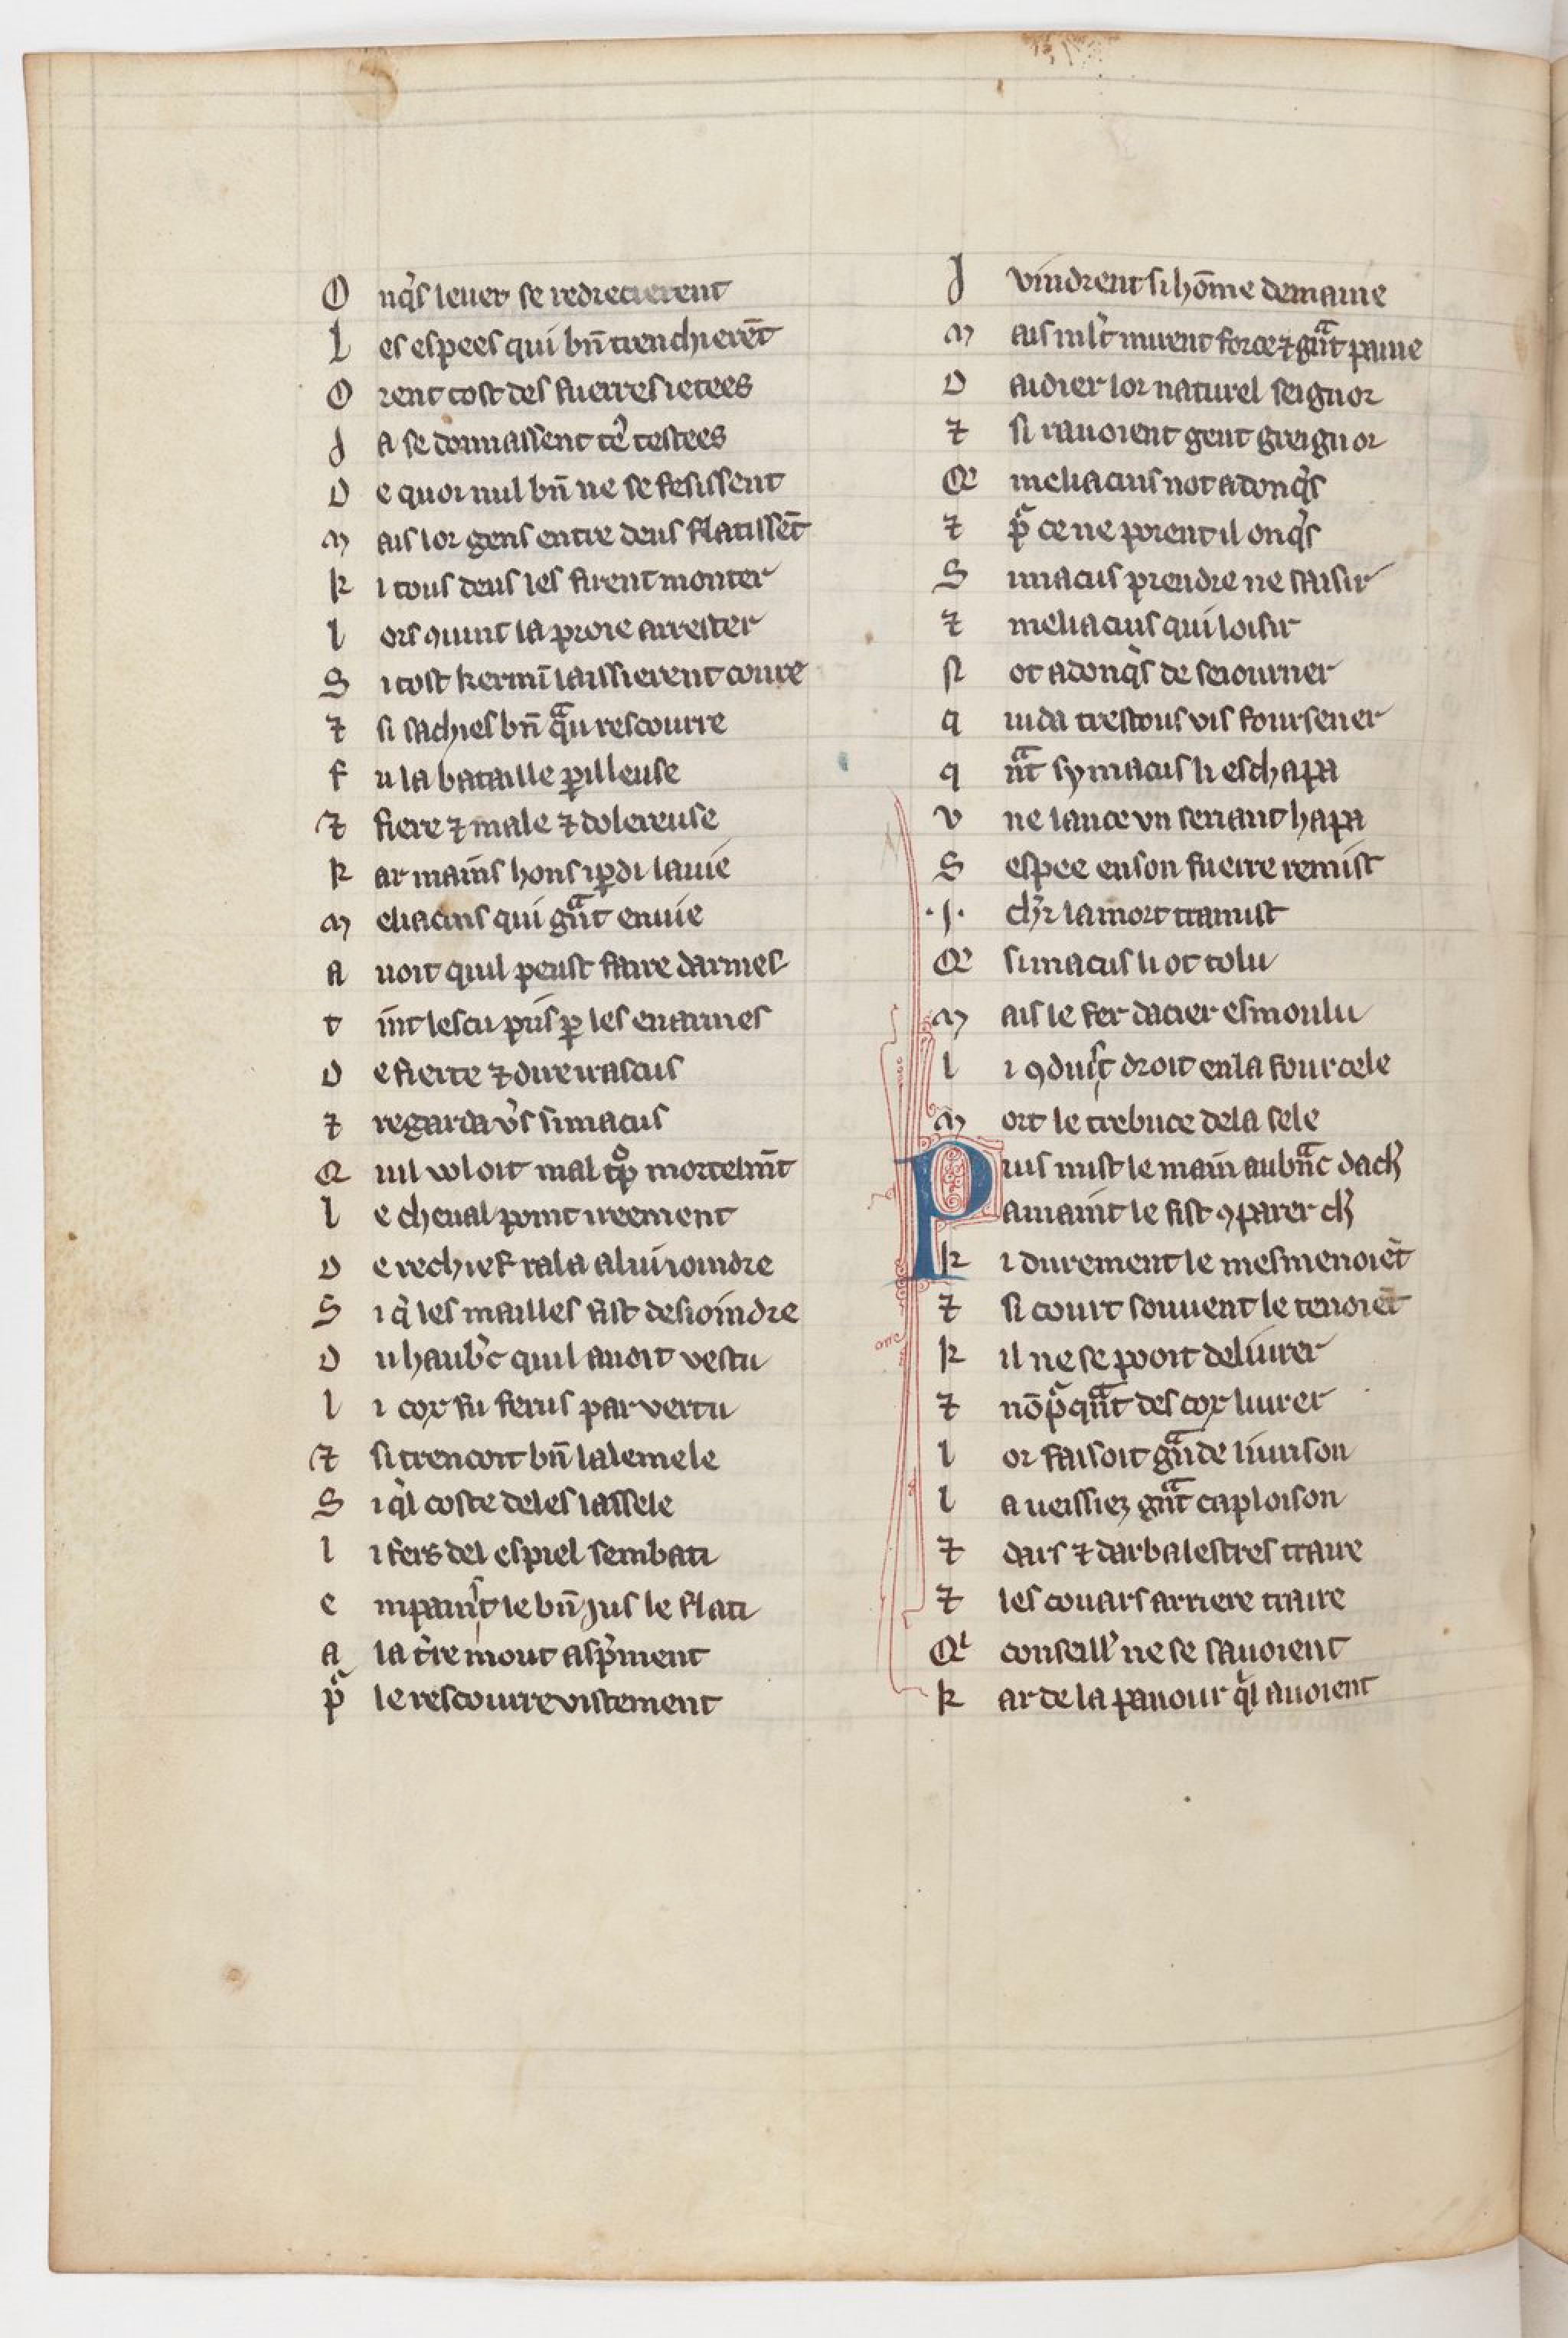 O nq̃s leuer se redrecierent
L es espees qui bñ trenchierẽt
O rent tost des fuerres ietees
J a se donnassent tẽ testees
D e quoi nul bñ ne se fesissent
M ais lor gens entre deus flatissẽt
K i tous deus les firent monter
L ors ꝯuint la proie arrester
S i tost kermĩ laissierent coure
⁊ si sachies bñ qᵃu rescourre
F u la bataille ꝑilleuse
⁊ fiere ⁊ male ⁊ dolereuse
K ar mains hons iꝑdi la uie
M eliacins qui gᵃnt enuie
A uoit quil peust faire darmes
T int lescu pris ꝑ les enarmes
D e fierte ⁊ dire irascus
⁊ regarda ũs simacus
Q uil voloit mal tᵒp mortelmt̃
L e cheual point ireement
D e rechief rala a lui ioindre
S i q̃ les mailles fist desioindre
D u haub̾c quil auoit vestu
L i cox fu ferus par vertu
⁊ si trencoit bñ lalemele
S i q̃l coste deles lassele
L i fers del espiel sembati
E mpainst le bñ jus le flati
A la t̾re mout asp̃ment
pᵃ le rescourre vistement
J vindrent si hõme demaine
M ais ml̾t miuent force ⁊ gᵃnt paine
D aidier lor naturel seignor
⁊ si rauoient gent greignor
Q̾ meliacius not adonq̃s
⁊ pᵃ ce ne porent il onq̃s
S imacus prendre ne saisir
⁊ meliacius qui loisir
N ot adonq̃s de seiourner
Q uida trestous vis foursener
Q nᵃt symacus li eschapa
V ne lance vn seriant hapa
S espee en son fuerre remist
.J. chl̾r la mort tramist
Q̾ simacus li ot tolu
M ais le fer dacier esmoulu
L i ꝯduist droit en la fourcele
M ort le trebuce de la sele
Puis mist le main au bᵃnc dach̾
A maint le fist ꝯparer ch̾
K i durement le mesmenoiẽt
⁊ si court souuent le tenoiẽt
K il ne se pooit deliurer
⁊ nõpᵃqᵃnt des cox liurer
L or faisoit gᵃnde liuison
L a ueissiez gᵃnt caploison
⁊ dars ⁊ darbalestres traire
⁊ les couars arriere traire
Qⁱ conseill̾ ne se sauoient
K ar de la paour q̾l auoient